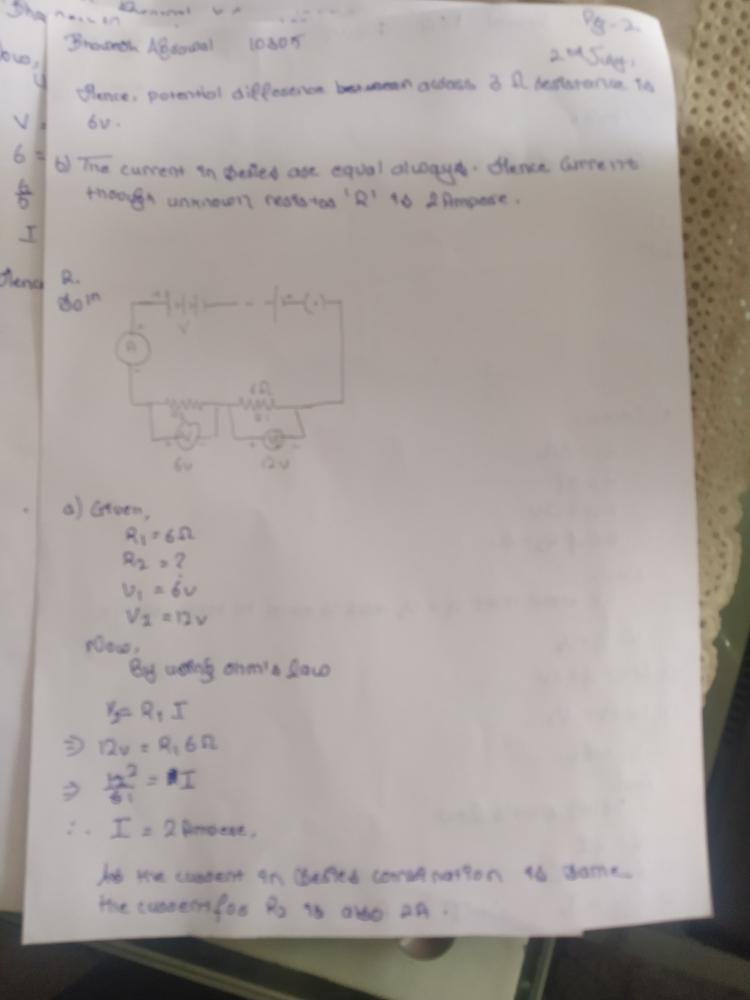 Pg-2.
Bhavnesh Agrawal 10305
2nd July,
Hence, potential difference between across 3 Ω resistance is
6v.
b) The current in series are equal always. Hence Current
through unknown resistor 'R' is 2 Ampere.
2.
Soln
V
A
6Ω
R1
6v
12v
a) Given,
R1 = 6Ω
R2 = ?
V1 = 6v
V2 = 12v
Now,
By using ohm's law
V2 = R1 I
⇒ 12v = R1 6Ω
⇒ 12 2 / 6 1 = I
∴ I = 2 Ampere.
As the current in series combination is same
the current for R2 is also 2A.
V =
6 =
6/5
I
Hence